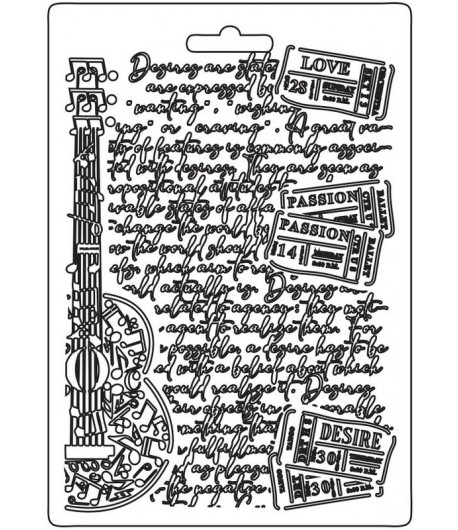 Desires are states
are expressed by
"wanting", "wishin
ing" or "craving". A great va
ty of features is commonly associ
ted with desires. They are seen as
ropositional attitudes t
ivable states of affa
change the world b
ow the world should
els, which aim to re
rld actually is. Desires
related to agency: they mot
agent to realize them. For
possible, a desire has to be
ed with a belief about which
would realize it. Desires
eir objects in rable
mething that
fulfillmen
as pleasu
the negative
LOVE
28
SUNDAY
8:00 P.M.
PASSION
BALLET
PASSION
14
MONDAY
9:00 P.M.
BALLET
DESIRE
30
30